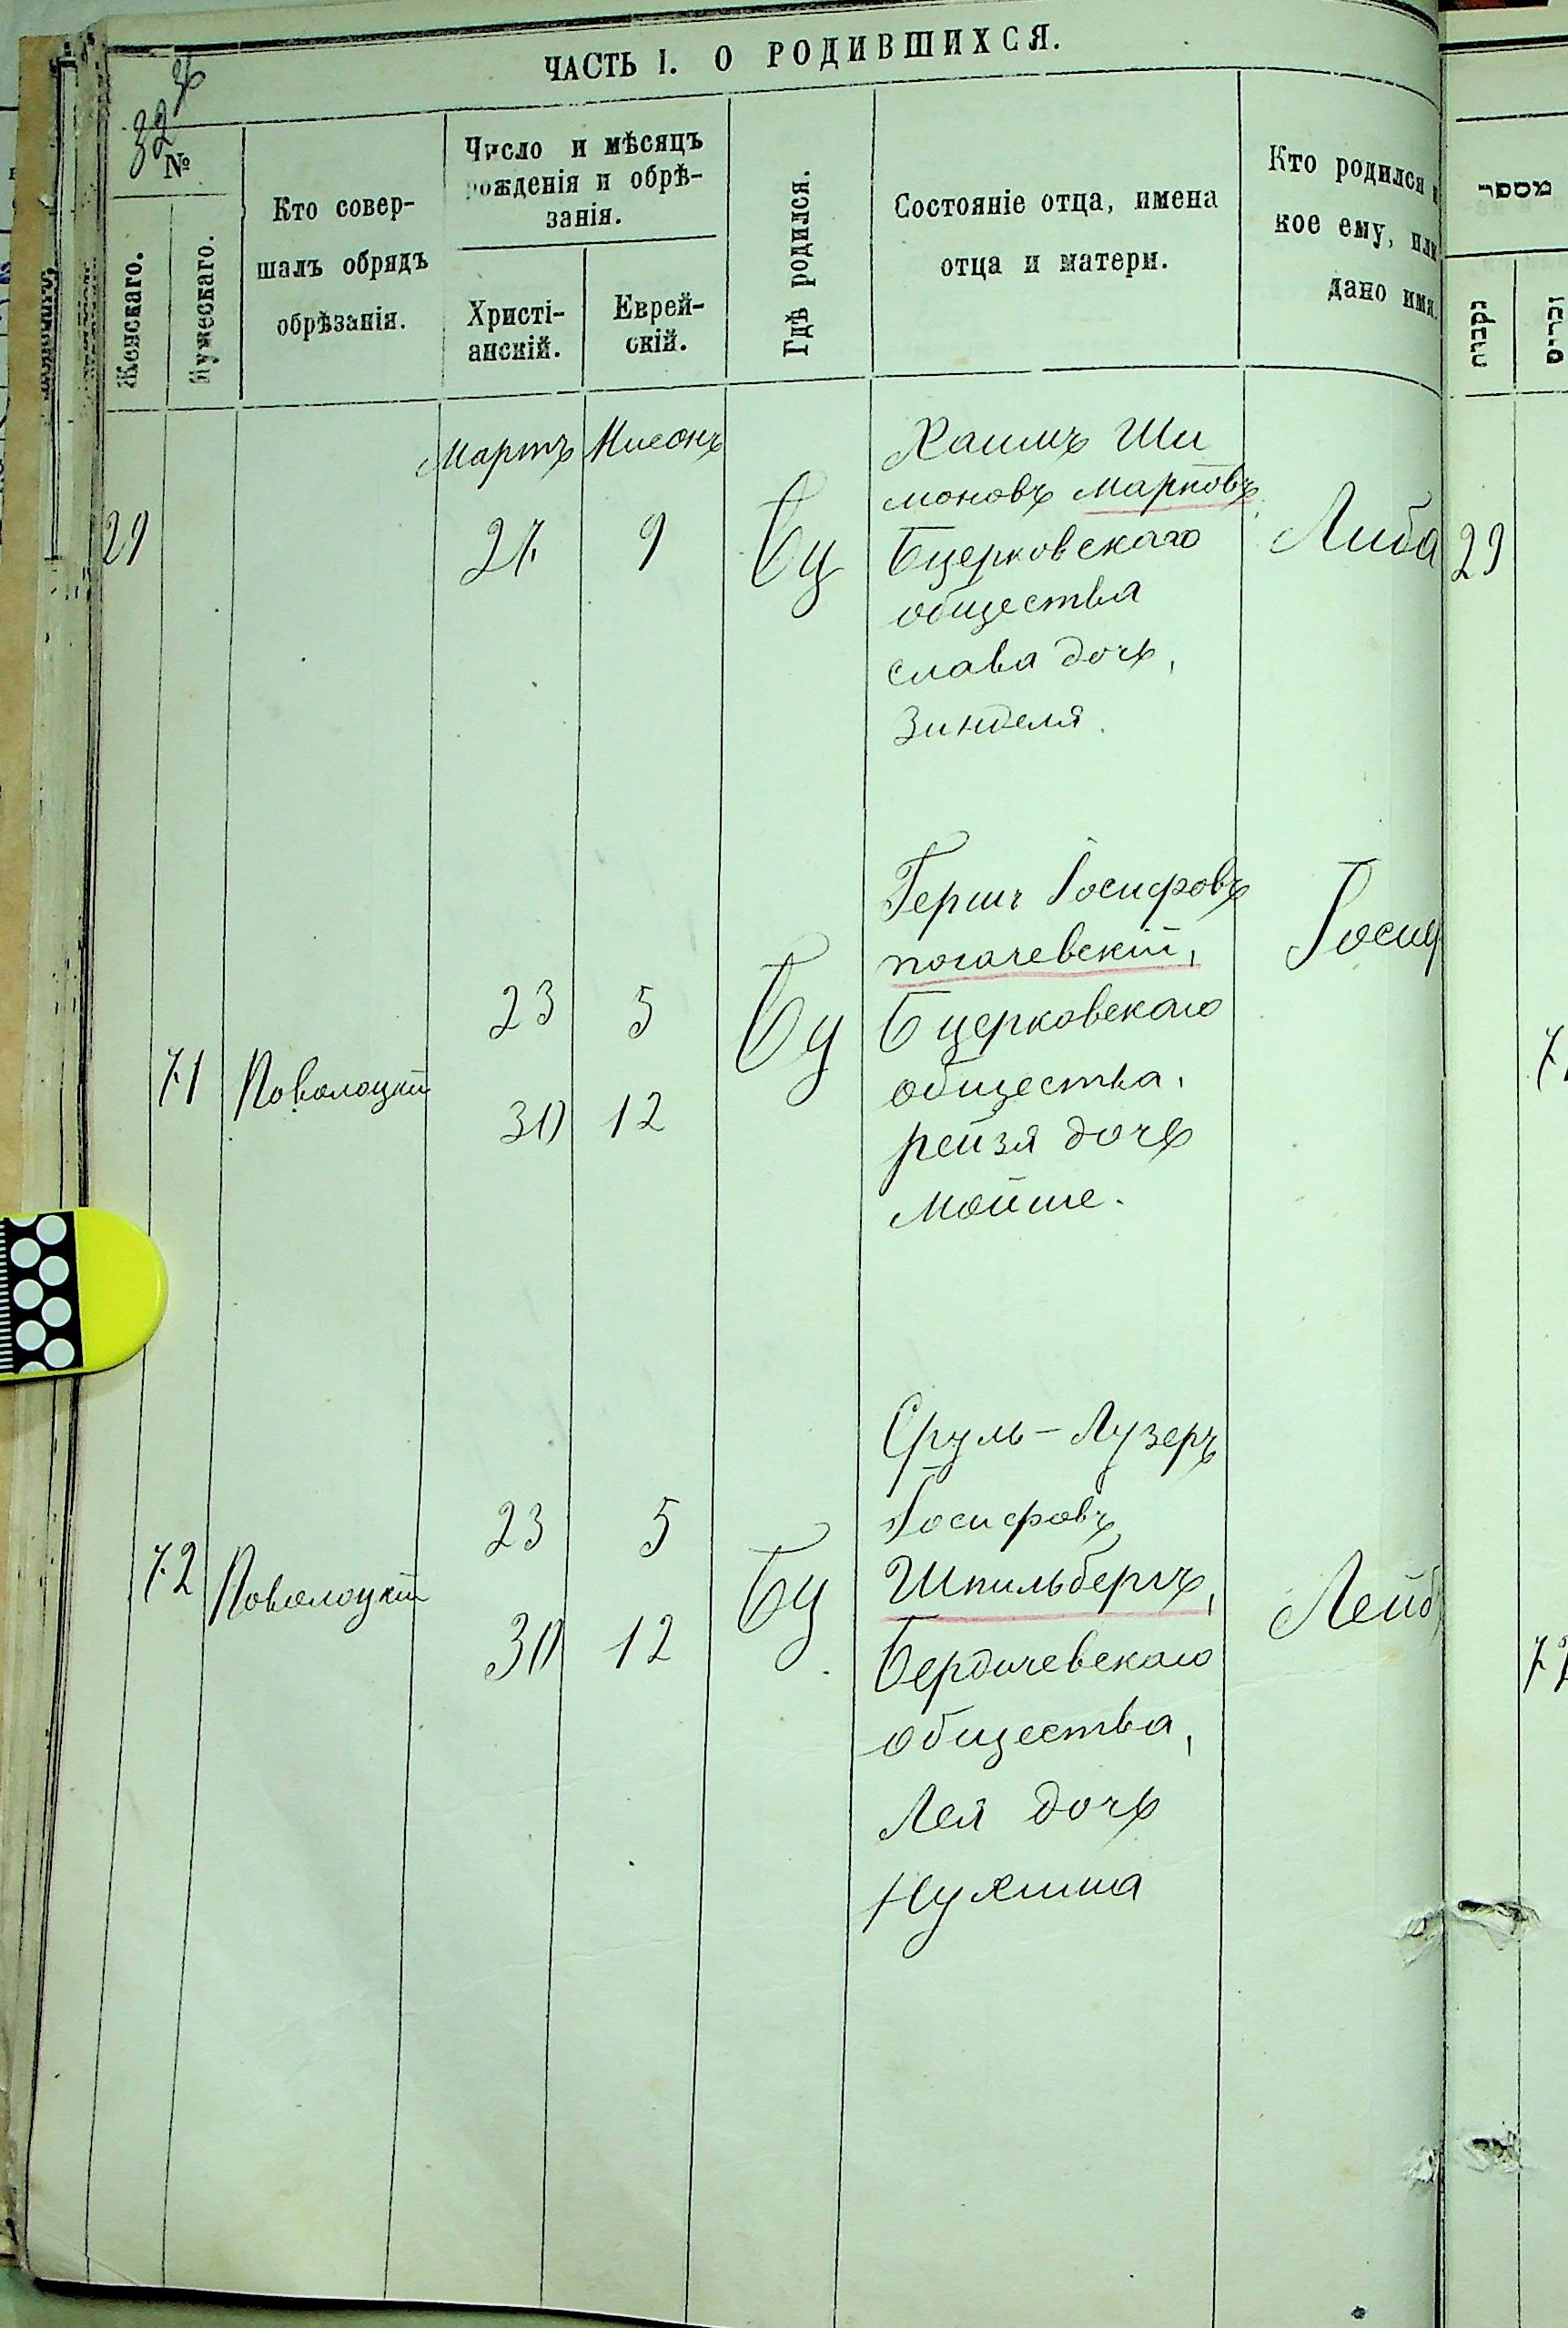 ЧАСТЬ I. О РОДИВШИХСЯ.
32
№
Женскаго.
Мужескаго.
Кто совер-
шалъ обрядъ
обрѣзанія.
Число и мѣсяцъ
рожденія и обрѣ-
занія.
Христі-
анскій.
Еврей-
скій.
Гдѣ родился.
Состояніе отца, имена
отца и матери.
Кто родился и
кое ему, или
дано имя.
מספר
נקבות
זכרים
Мартъ Нисонъ
29
27. 9
Бц
Хаимъ Ши
моновъ Марковъ
Бцерковскаго
общества
слава дочь,
Зинделя.
Либа
29
71 Поволоцкій
23 5
30 12
Бц
Гершъ Іосифовъ
погачевскій,
Бцерковскаго
общества,
рейзя дочь
Мойше.
Іосиф
7
72 Поволоцкій
23 5
30 12
Бц
Сруль-Лузеръ
Іосифовъ
Шпильбергъ,
Бердичевскаго
общества,
Лея дочь
Нухима
Лейб
72